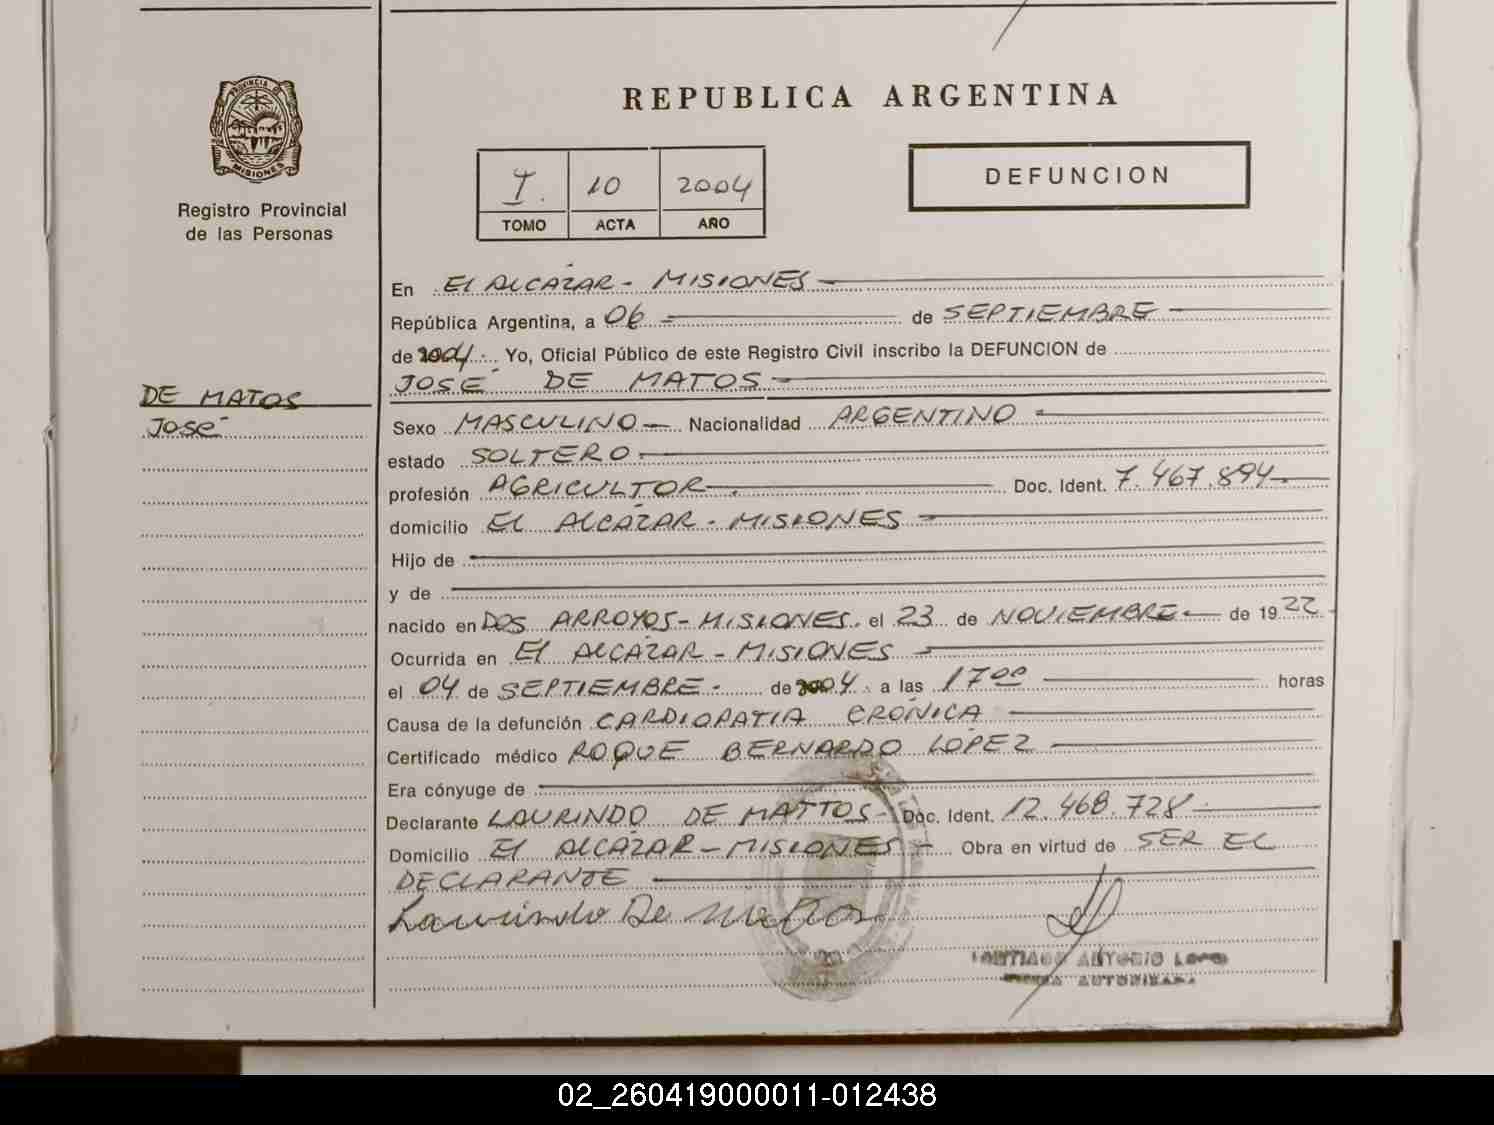 PROVINCIA DE
MISIONES
Registro Provincial
de las Personas
DE MATOS
José
REPUBLICA ARGENTINA
I. 10 2004
TOMO ACTA AÑO
DEFUNCION
En El ALCÁZAR - MISIONES
República Argentina, a 06 de SEPTIEMBRE
de 2004. Yo, Oficial Público de este Registro Civil inscribo la DEFUNCION de
JOSÉ DE MATOS
Sexo MASCULINO Nacionalidad ARGENTINO
estado SOLTERO
profesión AGRICULTOR Doc. Ident. 7.467.894
domicilio EL ALCÁZAR - MISIONES
Hijo de
y de
nacido en DOS ARROYOS - MISIONES. el 23 de NOVIEMBRE de 1922
Ocurrida en El ALCÁZAR - MISIONES
el 04 de SEPTIEMBRE - de 2004. a las 17 00 horas
Causa de la defunción CARDIOPATIA CRÓNICA
Certificado médico ROQUE BERNARDO LOPEZ
Era cónyuge de
Declarante LAURINDO DE MATTOS - Doc. Ident. 12.468.728
Domicilio El ALCÁZAR - MISIONES - Obra en virtud de SER EL
DECLARANTE
Laurindo De Mattos
SANTIAGO ANTONIO
AUTORIZADA
02_260419000011-012438